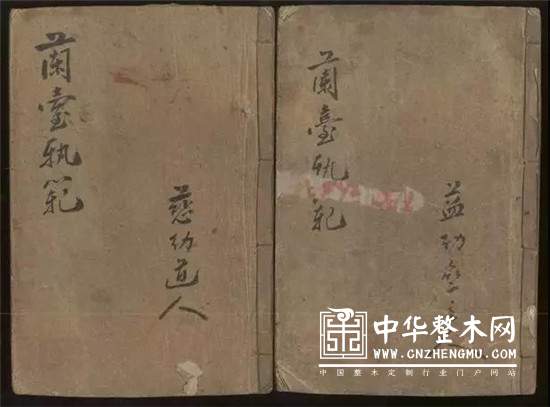 蘭臺軌範
慈幼道人
蘭臺軌範
益幼
中华整木网
WWW.CNZHENGMU.COM
中国整木定制行业门户网站